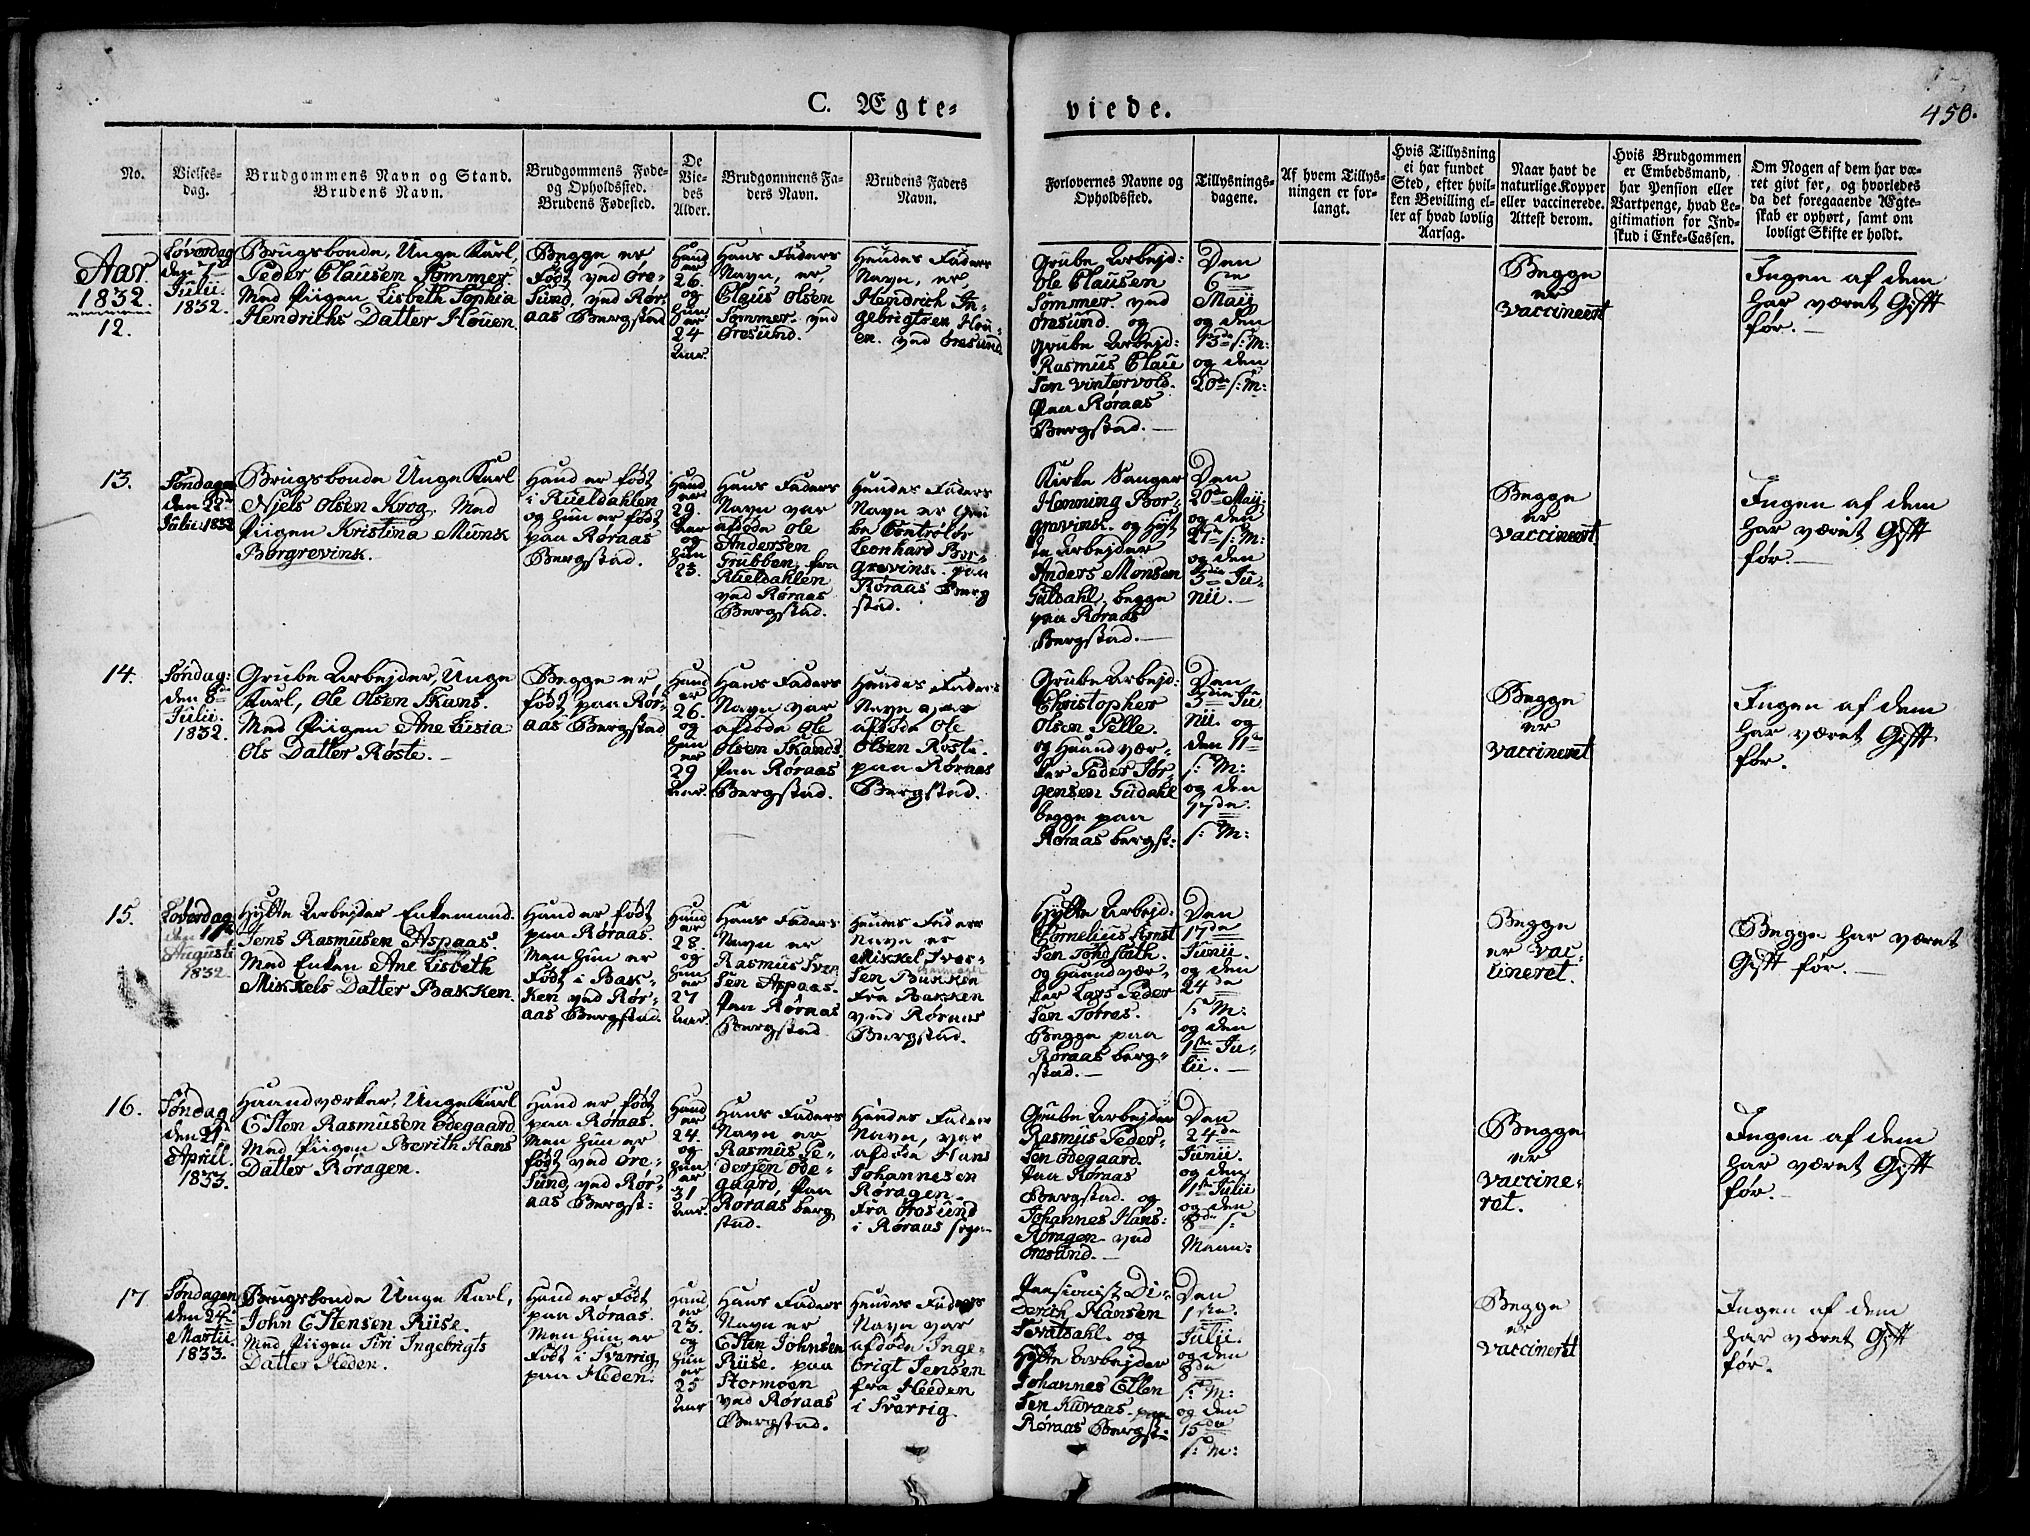 C. Ægte-
viede.
450.
No.
Vielses-
dag.
Brudgommens Navn og Stand.
Brudens Navn.
Brudgommens Føde-
og Opholdssted.
Brudens Fødested.
De
Vie-
des
Alder.
Brudgommens Fa-
ders Navn.
Brudens Faders
Navn.
Forlovernes Navne og
Opholdssted.
Tillysnings-
dagene.
Af hvem Tillys-
ningen er for-
langt.
Hvis Tillysning
ei har fundet
Sted, efter hvil-
ken Bevilling el-
ler af hvad lovlig
Aarsag.
Naar havt de
naturlige Kopper
eller vaccinerede.
Attest derom.
Hvis Brudgommen
er Embedsmand,
har Pension eller
Vartpenge, hvad Le-
gitimation for Ind-
skud i Enke-Cassen.
Om Nogen af dem har væ-
ret givt før, og hvorledes
da det foregaaende Ægte-
skab er ophørt, samt om
lovligt Skifte er holdt.
Aar
1832.
12.
Løverdag
den 7de
Julii.
1832.
Brugsbonde, Unge Karl,
Peder Clausen Sommer.
Med Piigen Lisbeth Sophia
Hendrichs Datter Houen.
Begge er
født ved Øre-
Sund, ved Rør-
aas Bergstad
Hand
er
26.
og
hun
er
24
Aar.
Hans Faders
Navn, er
Claus Olsen
Sommer. ved
Øresund.
Hendes Faders
Navn, er
Hendrich In-
gebrigtsen Hou-
en. ved Øresund.
Grube Arbejd:
Ole Clausen
Sommer ved
Øresund og
Grube Arbejd:
Rasmus Clau
sen Vintervold.
Paa Røraas
Bergstad.
Den
6te
Maij
og den
13de s: M:
og den
20de s: M:
Begge
er
vaccineert
Ingen af dem
har været Gifft
før.
13.
Søndagen
den 22de
Julii 1832
Brugsbonde Unge Karl
Niels Olsen Krog. Med
Piigen Kristina Munk
Borgrevink.
Hand er født
i Rueldahlen
og hun er født
paa Røraas
Bergstad.
Hand
er
29.
Aar
og
hun
23.
Hans Faders
Navn var
afdøde Ole
Andersen
Grubben, fra
Rueldahlen
ved Røraas
Bergstad.
Hendes Faders
Navn er Gru
be Contrølør
Leonhard Bor-
grevink. paa
Røraas Berg
stad.
Kirke Sanger
Henning Bor-
grevink. og Hyt
te Arbejder
Anders Monsen
Guldahl, begge
paa Røraas
Bergstad.
Den
20de Maij
og den
27de s: M:
og den
3die Ju-
nii.
Begge
er
vaccineert
Ingen af dem
har været Gifft
før.
14.
Søndag:
den 8de
Julii.
1832.
Grube Arbejder, Unge
Karl, Ole Olsen Skans.
Med Piigen Ane Lisia
Ols Datter Røste.
Begge er,
født paa Rør-
aas Bergstad
Hand
er
26.
og
hun
er
29
Aar.
Hans Faders
Navn var
afdøde Ole
Olsen Skands.
Paa Røraas
Bergstad.
Hendes Faders
Navn var
afdøde Ole
Olsen Røste.
paa Røraas
Bergstad.
Grube Arbejd:
Christopher
Olsen Pelle.
og Haandvær-
ker Peder Jør-
gensen Gudahl
begge paa
Røraas bergst:
Den
3die Ju
nii. og
den 11te
s: M:
og den
17de
s: M:
Begge
er
vaccineret
Ingen af dem
har været Gifft
før.
15.
Løverdag
den 11te
Augusti
1832.
Hytte Arbejder Enkemand.
Jens Rasmusen Aspaas.
Med Enken Ane Lisbeth
Mikkels Datter Bakken.
Hand er født
paa Røraas.
Men hun er
født i Bak-
ken ved Rør-
aas Bergstad.
Hand
er
28.
og
hun
er
27
Aar.
Hans Faders
Navn er
Rasmus Iver
sen Aspaas.
Paa Røraas
Bergstad.
Hendes Faders
Navn er
Mikkel Iver-
sen Bakken
fra Bakken
ved Røraas
Bergstad.
Hytte Arbejd:
Cornelius Ernst
og Haandvær-
ker Lars Peder
sen Torres.
Begge paa
Røraas berg-
stad.
Den
17de
Junii.
og den
24de
s: M:
og den
1ste Ju-
lii.
Begge
er vac-
cineret.
Begge har været
Gifft før.
16.
Søndag
den 21de
Aprill.
1833.
Haandværker, Unge Karl
Esten Rasmusen Ødegaard.
Med Piigen Berith Hans
Datter Røragen.
Hand er født
paa Røraas.
Men hun er
født ved Øre-
Sund, ved Rør-
aas Bergst:
Hand
er
24.
og
hun
er
31
Aar.
Hans Faders
Navn er
Rasmus Pe-
dersen Øde-
gaard, Paa
Røraas berg
stad.
Hendes Fader
Navn, var
afdøde Hans
Johannesen
Røragen.
fra Øresund
i Røraas
Grube Arbejder
Rasmus Peder-
sen Ødegaard.
Paa Røraas
Bergstad. og
Johannes Hans:
Røragen ved
Øresund.
Den
24de
Junii.
og den
1ste Julii
og den
8de s:
Maan:
Begge
er
vaccine-
ret.
Ingen af dem
har været Gifft
før.
17
Søndagen
den 24de
Martii
1833.
Brugsbonde Unge Karl,
John Estensen Riise.
Med Piigen Siri Ingebrigts
Datter Heden.
Hand er født
paa Røraas.
Men hun er
født i Sverrig
paa Heden.
Hand
er
23.
og
hun
er
25
Aar
Hans Faders
Navn er
Esten Johnsen
Riise. paa
Stormoen
ved Røraas
Bergstad.
Hendes Faders
Navn var
afdøde Inge-
brigt Jensen
fra Heeden
i Sverrig
Pensionist Di-
derich Hansen
og
Hytte Arbejder
Johannes Ellen
sen Kuraas. paa
Røraas Bergst:
Den
1ste
Julii.
og den
8de
s: M:
og den
15de
s: M:
Begge
er
vaccineret
Ingen af dem
har været Gifft
før.